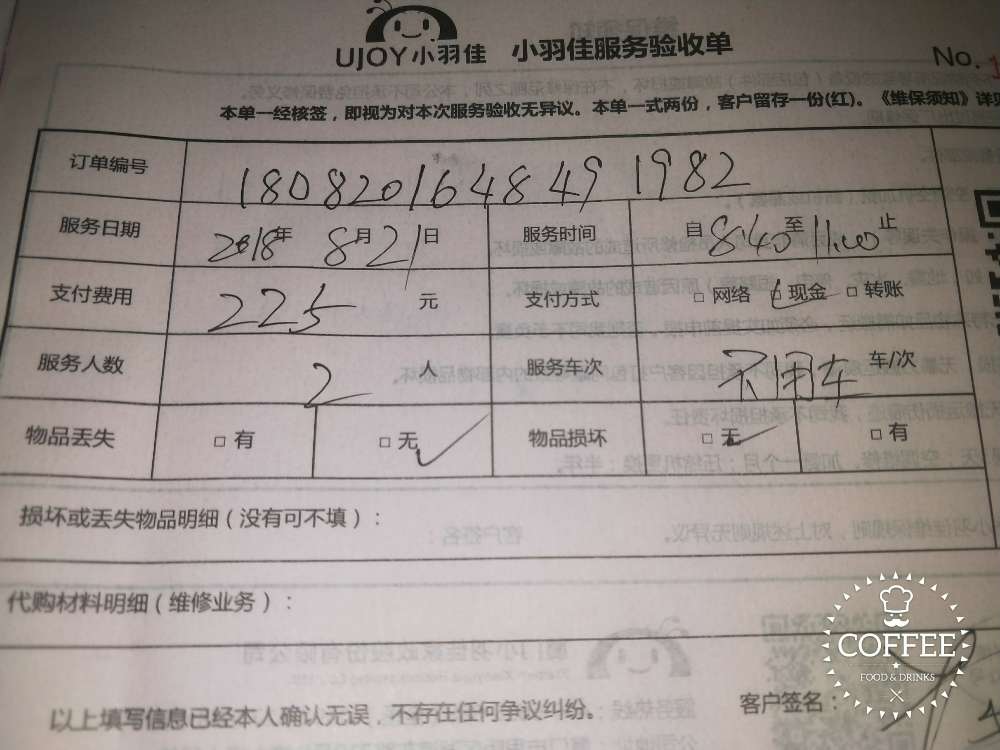 UJOY小羽佳 小羽佳服务验收单
No.1
本单一经核签，即视为对本次服务验收无异议。本单一式两份，客户留存一份(红)。《维保须知》详见
订单编号 1808201648491982
服务日期 2018年 8月21日 服务时间 自8:40至11:00止
支付费用 225 元 支付方式 □ 网络 □ 现金 □ 转账
服务人数 2 人 服务车次 不用车 车/次
物品丢失 □ 有 □ 无 ✓ 物品损坏 □ 无 ✓ □ 有
损坏或丢失物品明细（没有可不填）：
代购材料明细（维修业务）：
以上填写信息已经本人确认无误，不存在任何争议纠纷。 客户签名：
COFFEE
FOOD & DRINKS